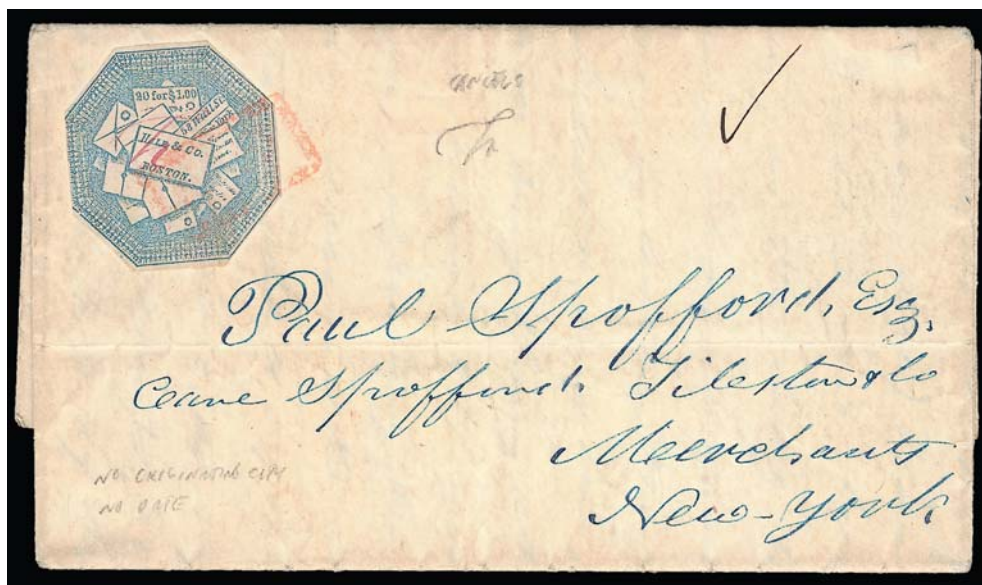 20 for $1.00
58 Wall St.
HALE & CO.
BOSTON.
CANCELS
Paul Spofford, Esq.
Care Spofford Tileston & Co
Merchants
New-York
NO ORIGINATING CITY
NO DATE